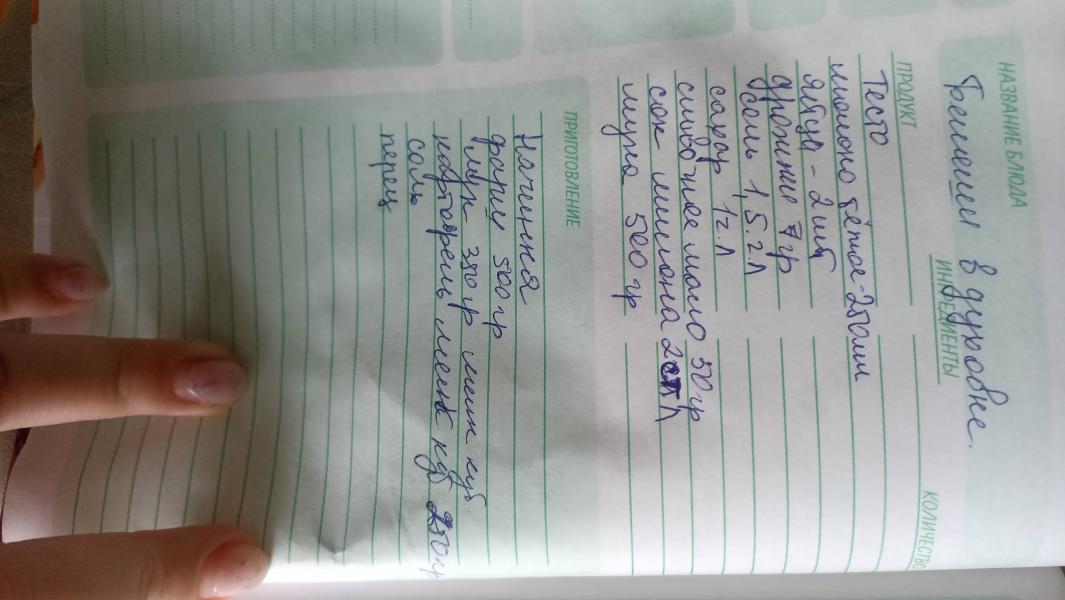 НАЗВАНИЕ БЛЮДА
Беляши в духовке.
ИНГРЕДИЕНТЫ
ПРОДУКТ
КОЛИЧЕСТВО
Тесто
молоко тёплое - 250 мл
яйца - 2 шт
дрожжи 7 гр
соль 1,5 г.л
сахар 1 г.л
сливочное масло 50 гр
сок лимона 2 ст л
мука 500 гр
ПРИГОТОВЛЕНИЕ
Начинка
фарш 500 гр
лук 350 гр мелк куб.
картофель мелк куб 250 гр
соль
перец